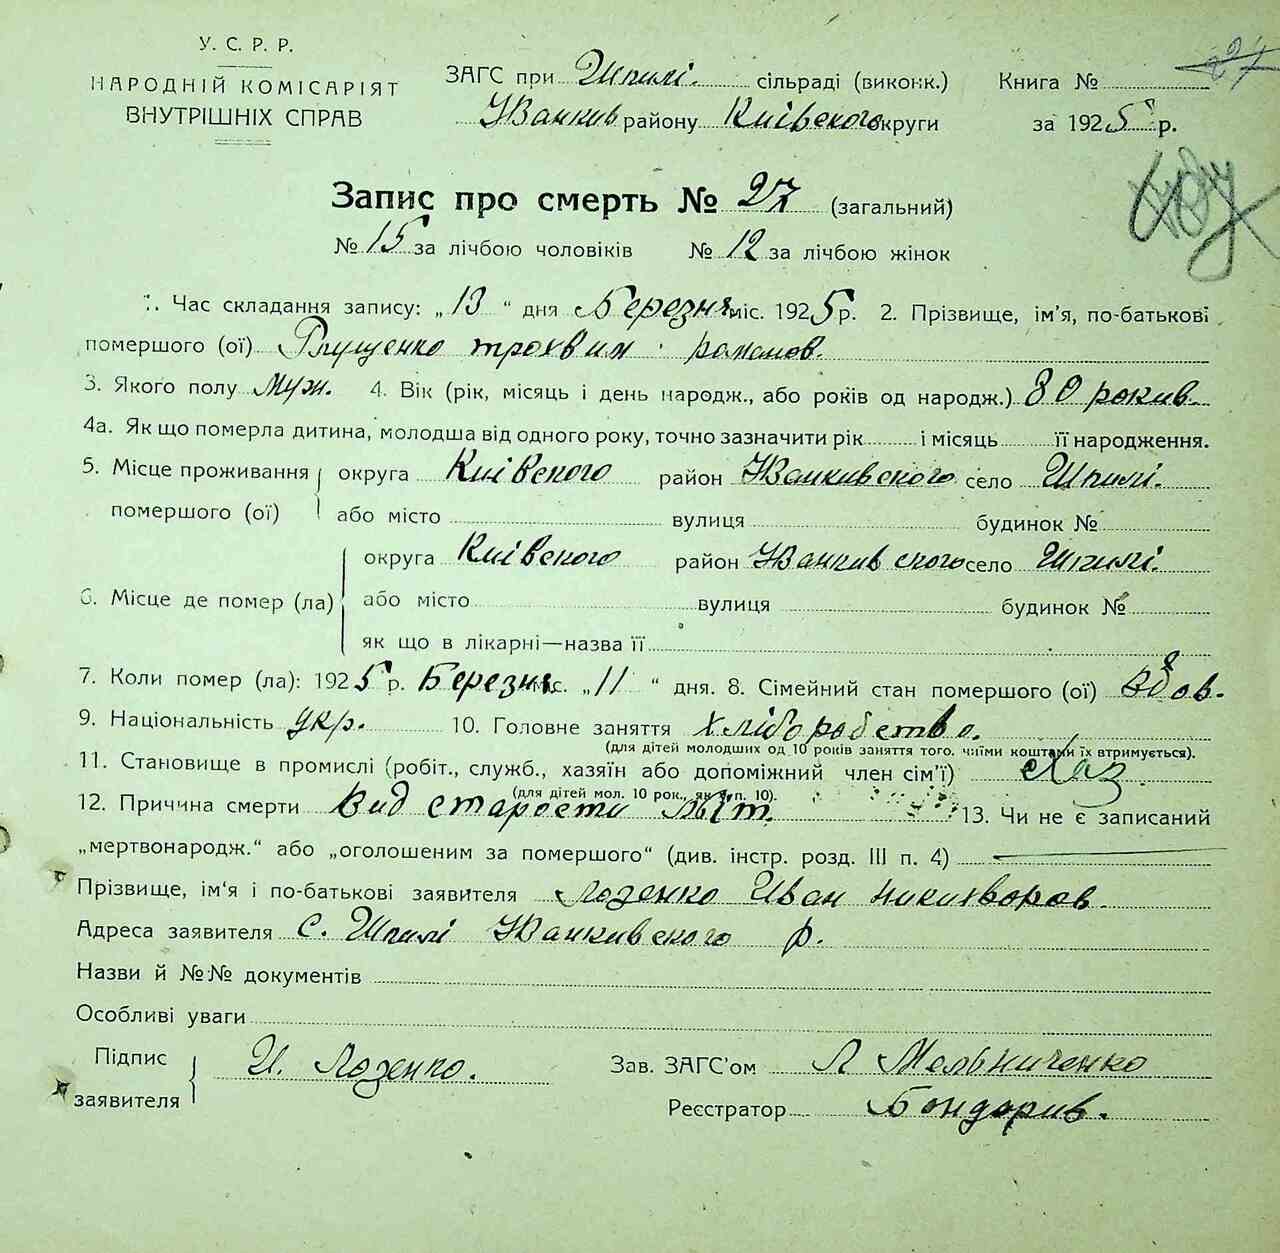 У. С. Р. Р.
НАРОДНІЙ КОМІСАРІЯТ
ВНУТРІШНІХ СПРАВ
ЗАГС при Шпилі. сільраді (виконк.)
Іванкив району Київского округи
Книга №
27
за 1925 р.
Запис про смерть № 27 (загальний)
№ 15 за лічбою чоловіків № 12 за лічбою жінок
1. Час складання запису: „13“ дня Березня міс. 1925 р. 2. Прізвище, ім'я, по-батькові
помершого (ої) Глущенко трохвим романов.
3. Якого полу муж. 4. Вік (рік, місяць і день народж., або років од народж.) 80 рокив.
4а. Як що померла дитина, молодша від одного року, точно зазначити рік і місяць її народження.
5. Місце проживання помершого (ої) округа Київского район Іванкивского село Шпилі.
або місто вулиця будинок №
6. Місце де помер (ла) округа Київского район Іванкивского село Шпилі.
або місто вулиця будинок №
як що в лікарні—назва її
7. Коли помер (ла): 1925 р. Березня міс. „11“ дня. 8. Сімейний стан помершого (ої) вдов.
9. Національність укр. 10. Головне заняття хліборобство.
(для дітей молодших од 10 років заняття того, чиїми коштами їх втримується).
11. Становище в промислі (робіт., служб., хазяїн або допоміжний член сім'ї) хаз
(для дітей мол. 10 рок., як в п. 10).
12. Причина смерти Вид старости літ. 13. Чи не є записаний
„мертвонародж.“ або „оголошеним за помершого“ (див. інстр. розд. III п. 4)
Прізвище, ім'я і по-батькові заявителя Лозенко Иван никихворов.
Адреса заявителя С. Шпилі Іванкивского р.
Назви й №№ документів
Особливі уваги
Підпис заявителя И. Лозенко.
Зав. ЗАГС'ом Л Мельниченко
Реєстратор Бондарив.